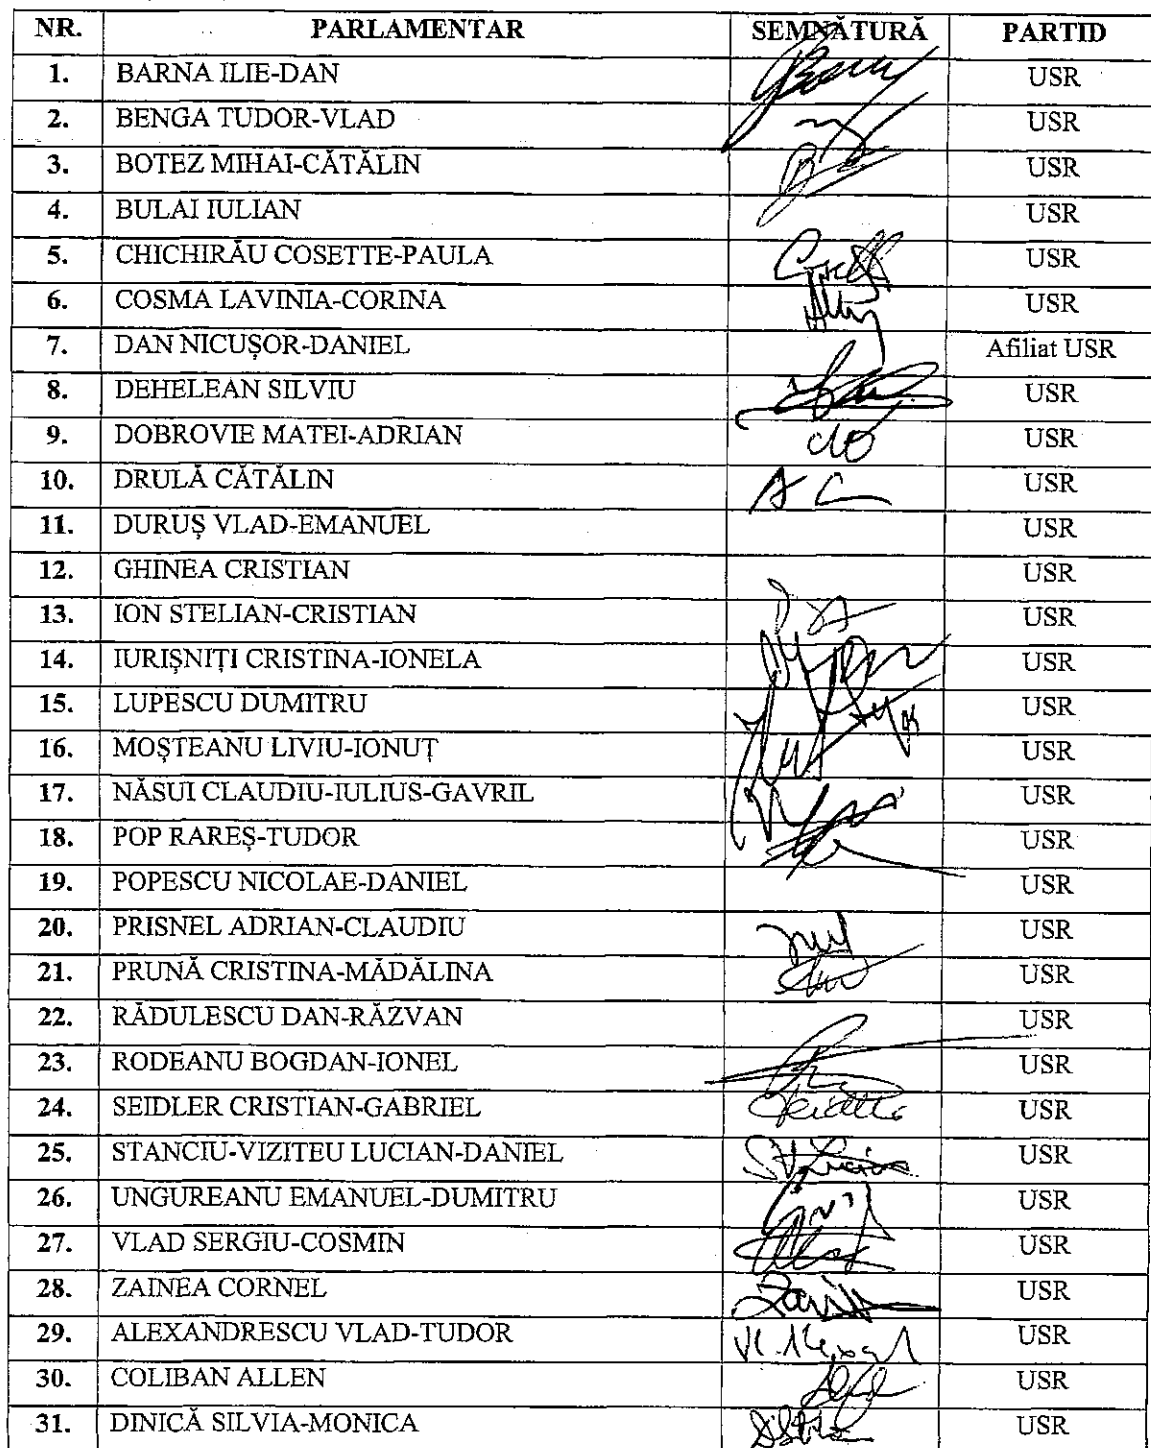 NR. PARLAMENTAR SEMNĂTURĂ PARTID
1. BARNA ILIE-DAN USR
2. BENGA TUDOR-VLAD USR
3. BOTEZ MIHAI-CĂTĂLIN USR
4. BULAI IULIAN USR
5. CHICHIRĂU COSETTE-PAULA USR
6. COSMA LAVINIA-CORINA USR
7. DAN NICUȘOR-DANIEL Afiliat USR
8. DEHELEAN SILVIU USR
9. DOBROVIE MATEI-ADRIAN USR
10. DRULĂ CĂTĂLIN USR
11. DURUȘ VLAD-EMANUEL USR
12. GHINEA CRISTIAN USR
13. ION STELIAN-CRISTIAN USR
14. IURIȘNIȚI CRISTINA-IONELA USR
15. LUPESCU DUMITRU USR
16. MOȘTEANU LIVIU-IONUȚ USR
17. NĂSUI CLAUDIU-IULIUS-GAVRIL USR
18. POP RAREȘ-TUDOR USR
19. POPESCU NICOLAE-DANIEL USR
20. PRISNEL ADRIAN-CLAUDIU USR
21. PRUNĂ CRISTINA-MĂDĂLINA USR
22. RĂDULESCU DAN-RĂZVAN USR
23. RODEANU BOGDAN-IONEL USR
24. SEIDLER CRISTIAN-GABRIEL USR
25. STANCIU-VIZITEU LUCIAN-DANIEL USR
26. UNGUREANU EMANUEL-DUMITRU USR
27. VLAD SERGIU-COSMIN USR
28. ZAINEA CORNEL USR
29. ALEXANDRESCU VLAD-TUDOR USR
30. COLIBAN ALLEN USR
31. DINICĂ SILVIA-MONICA USR